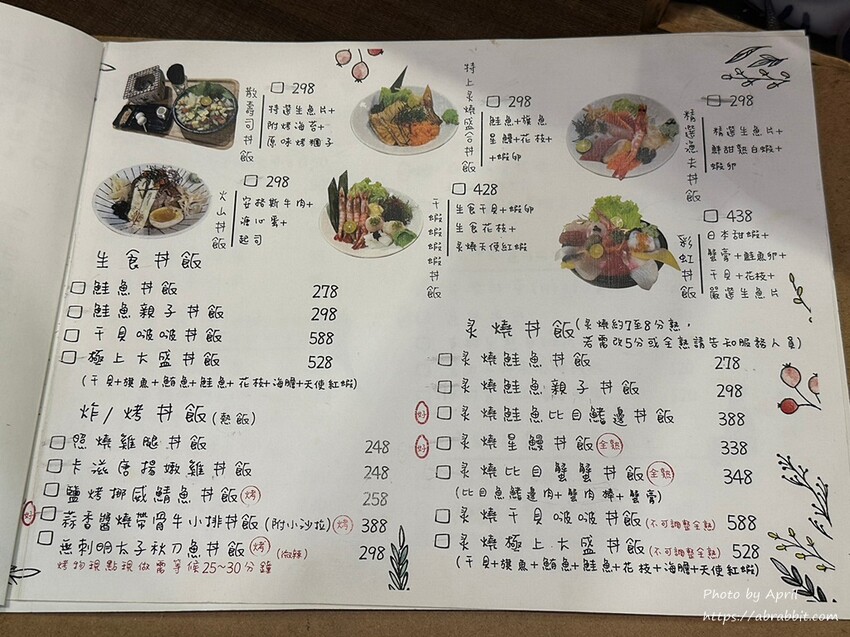 散壽司丼飯
298
特選生魚片+
附烤海苔+
原味烤糰子
特上炙燒盛合丼飯
298
鮭魚+旗魚
星鰻+花枝+
+蝦卵
精選漁夫丼飯
298
精選生魚片+
鮮甜熟白蝦+
蝦卵
火山丼飯
298
安格斯牛肉+
溏心蛋+
起司
干蝦蝦蝦丼飯
428
生食干貝+蝦卵
生食花枝+
炙燒天使紅蝦
彩虹丼飯
438
日本甜蝦+
蟹膏+鮭魚卵+
干貝+花枝+
嚴選生魚片
生食丼飯
鮭魚丼飯 278
鮭魚親子丼飯 298
干貝啵啵丼飯 588
極上大盛丼飯 528
(干貝+旗魚+鮪魚+鮭魚+花枝+海膽+天使紅蝦)
炸/烤丼飯(熱飯)
照燒雞腿丼飯 248
卡滋唐揚嫩雞丼飯 248
鹽烤挪威鯖魚丼飯 烤 258
蒜香醬燒帶骨牛小排丼飯(附小沙拉) 烤 388
無刺明太子秋刀魚丼飯 烤 (微辣) 298
烤物現點現做需等候25~30分鐘
炙燒丼飯(炙燒約7至8分熟,
若需改5分或全熟請告知服務人員)
炙燒鮭魚丼飯 278
炙燒鮭魚親子丼飯 298
炙燒鮭魚比目鰭邊丼飯 388
炙燒星鰻丼飯 全熟 338
炙燒比目蟹蟹丼飯 全熟 348
(比目魚鰭邊肉+蟹肉棒+蟹膏)
炙燒干貝啵啵丼飯(不可調整全熟) 588
炙燒極上大盛丼飯(不可調整全熟) 528
(干貝+旗魚+鮪魚+鮭魚+花枝+海膽+天使紅蝦)
Photo by April
https://abrabbit.com/